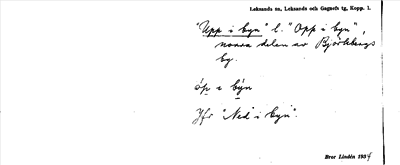 Leksands sn, Leksands och Gagnefs tg, Kopp. l.
"Upp i byn" l. "Opp i byn",
norra delen av Björkbergs
by.
óp i býn
Jfr "Ned i byn".
Bror Lindén 1934